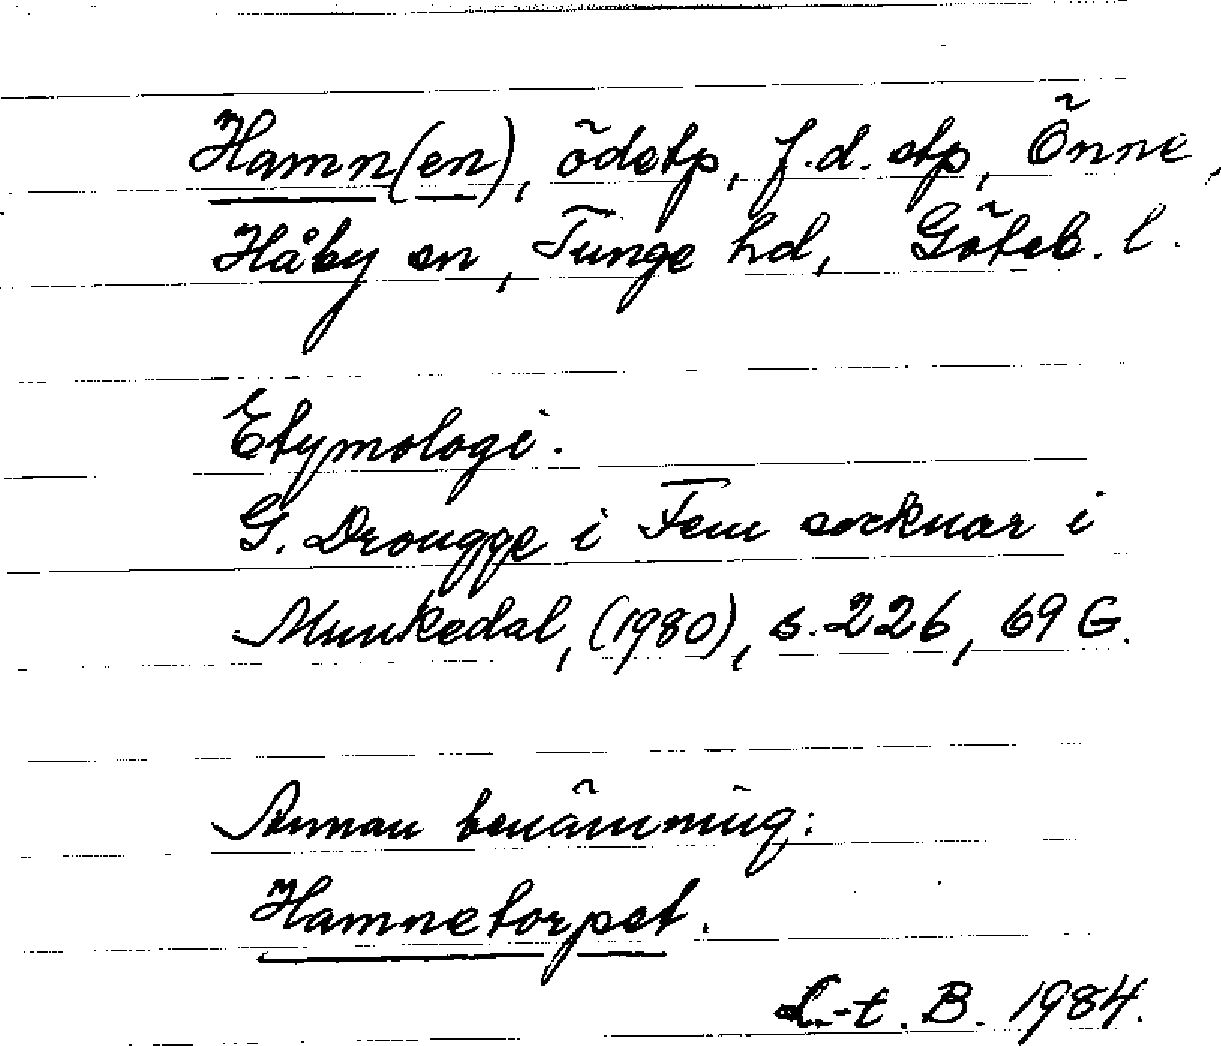 Hamn(en), ödetp, f.d. stp, Önne,
Håby sn, Tunge hd, Göteb. l.
Etymologi.
G. Drougge i Fem socknar i
Munkedal, (1980), s. 226, 69 G.
Annan benämning:
Hamnetorpet.
L-t. B. 1984.